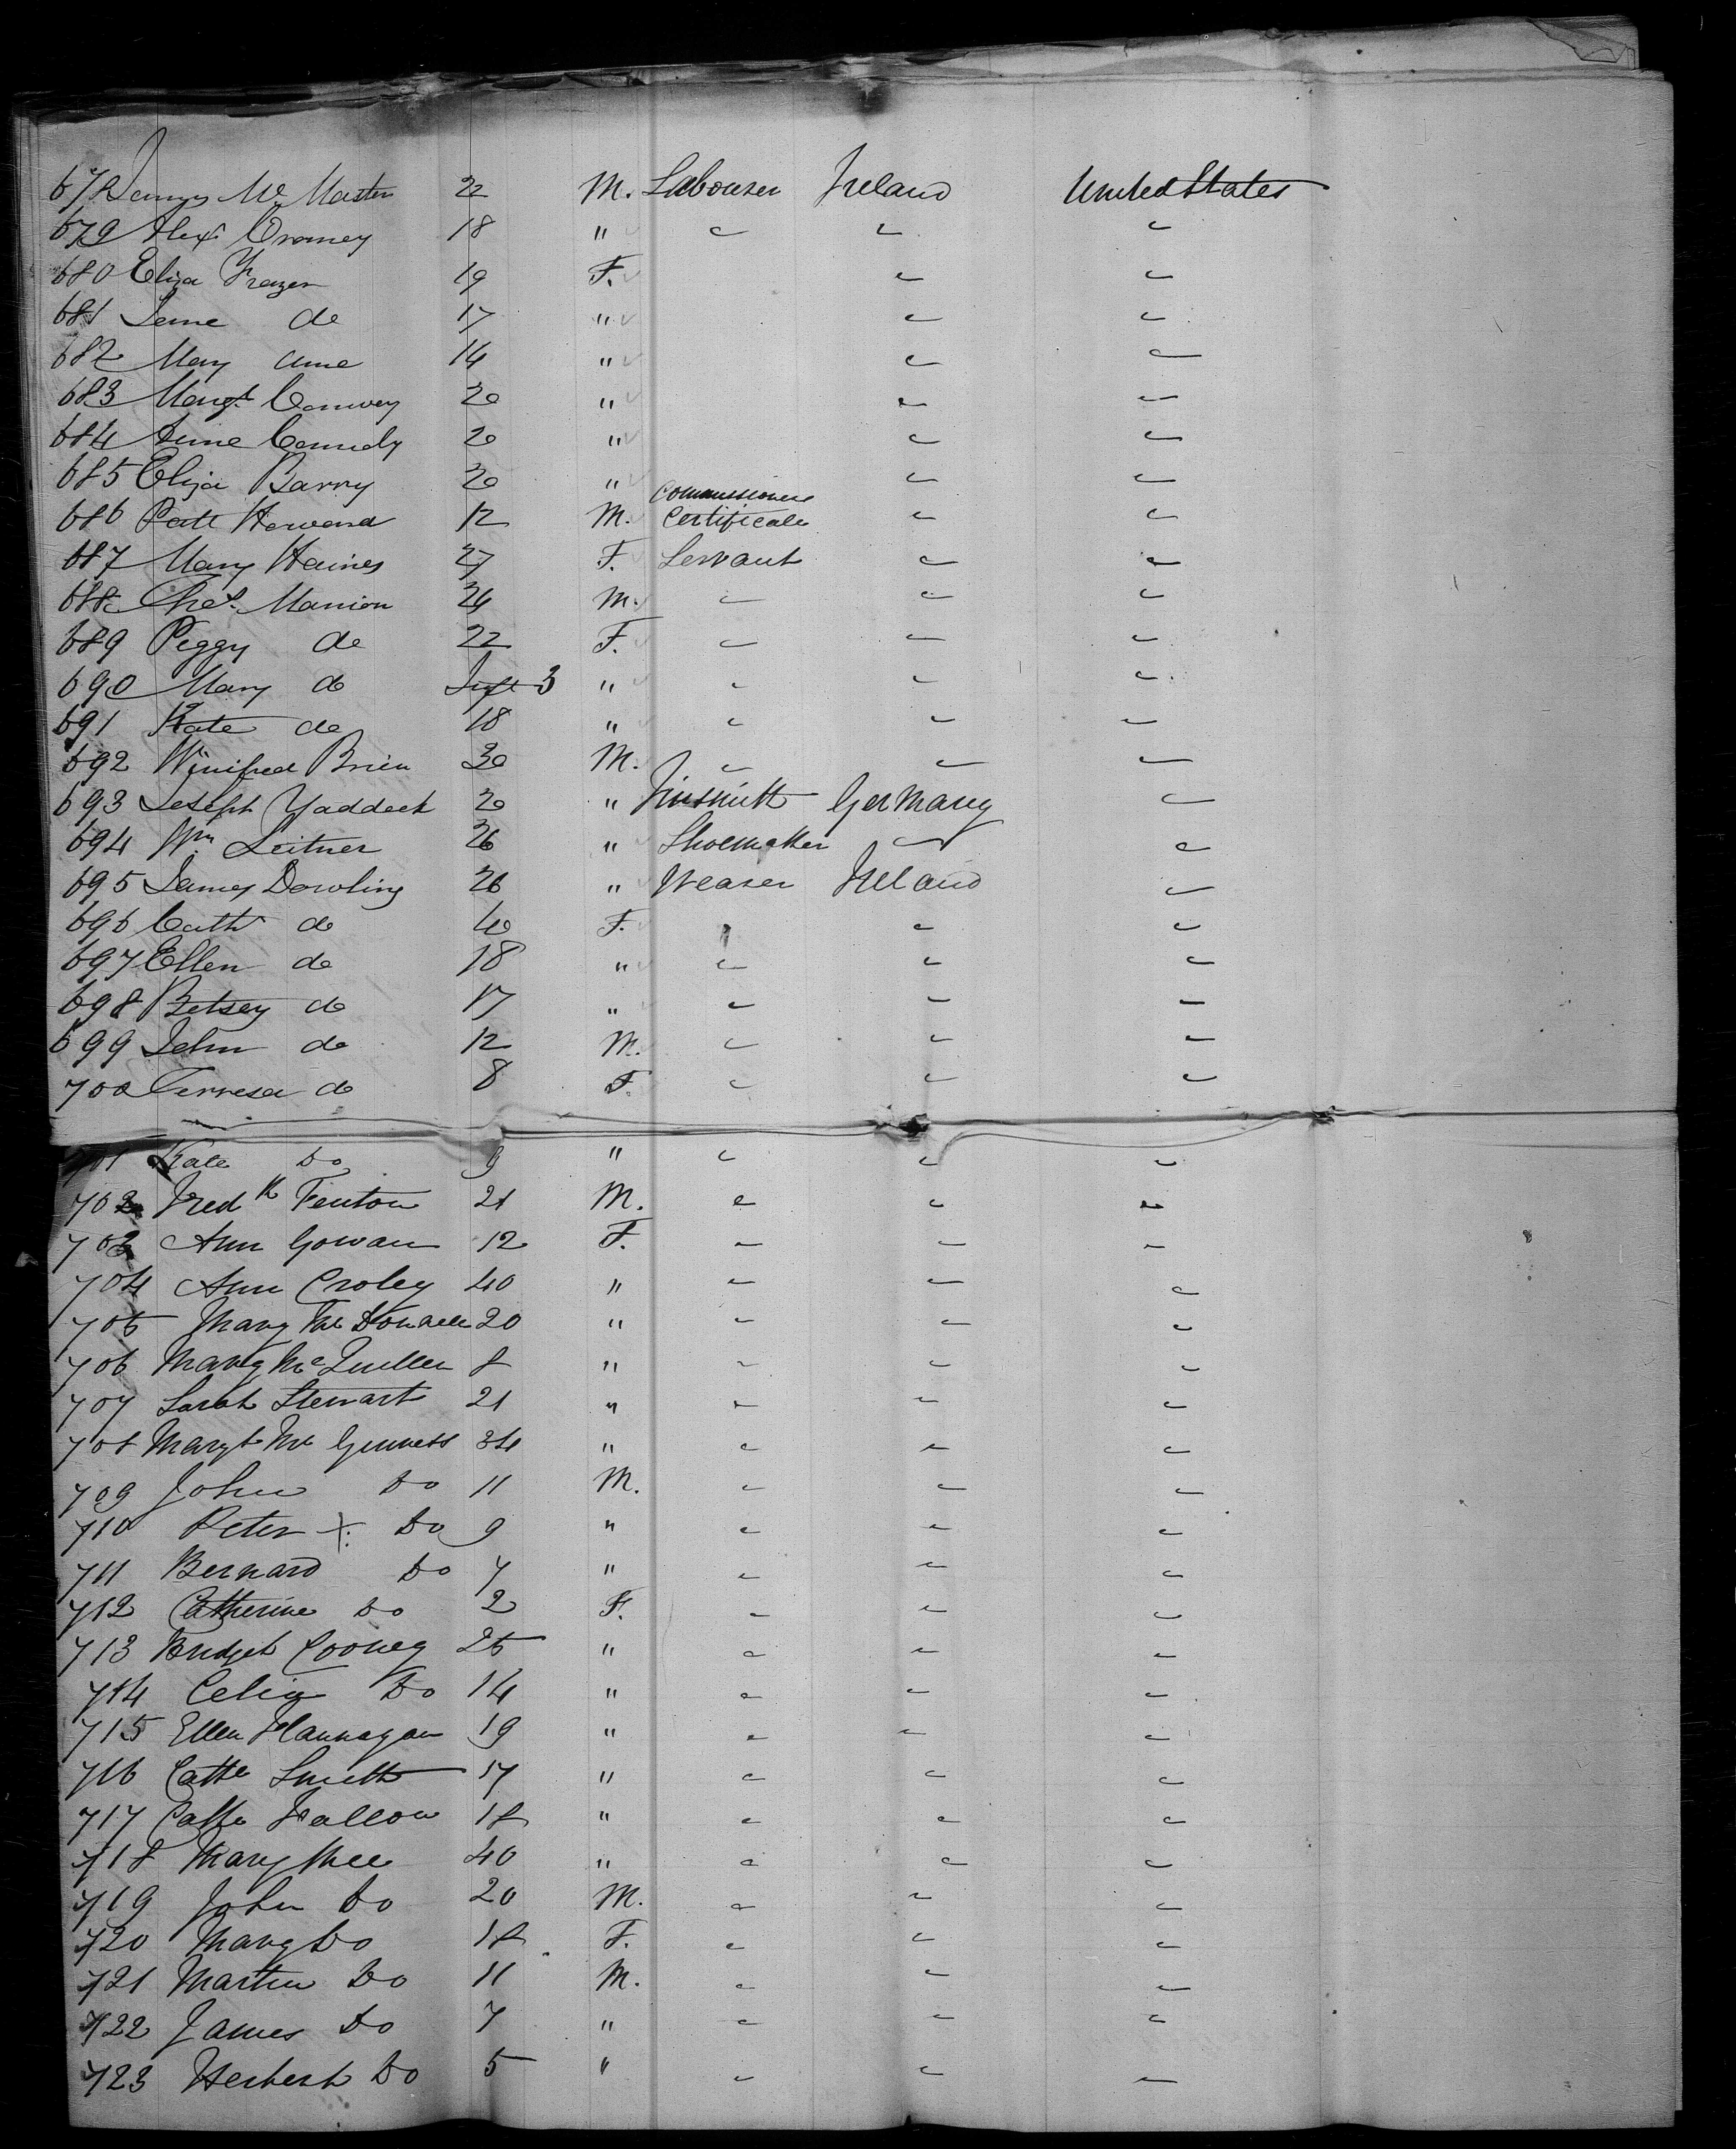 678 James Mc Master 22 M. Labourer Ireland United States
679 Alexr Cromey 18 " " " "
680 Eliza Frazer 19 F. " "
681 Jane do 17 " " "
682 Mary Anne 14 " " "
683 Margt Conway 20 " " "
684 Anne Connedy 20 " " "
685 Eliza Barry 20 " " "
Commissioners
686 Patt Howard 12 M. Certificate " "
687 Mary Haines 27 F. Servant " "
688 Thos. Manion 24 M. " " "
689 Peggy do 22 F. " " "
690 Mary do Inft 3 " " " "
691 Kate do 18 " " " "
692 Winifred Brien 30 M. " " "
693 Joseph Yaddeck 20 " Tinsmith Germany "
694 Wm Leitner 26 " Shoemaker " "
695 James Dowling 26 " Weaver Ireland "
696 Cath do 40 F. " " "
697 Ellen do 18 " " " "
698 Betsey do 17 " " " "
699 John do 12 M. " " "
700 Terresa do 8 F. " " "
701 Kate Do 9 " " " "
702 Fredk Fenton 21 M. " " "
703 Ann Gowan 12 F. " " "
704 Ann Croley 40 " " " "
705 Mary Mc Donnell 20 " " " "
706 Mary Mc Quillen 8 " " " "
707 Sarah Stewart 21 " " " "
708 Margt Mc Guiness 34 " " " "
709 John Do 11 M. " " "
710 Peter X. Do 9 " " " "
711 Bernard Do 7 " " " "
712 Catherine Do 2 F. " " "
713 Bridget Cooney 25 " " " "
714 Celia Do 14 " " " "
715 Ellen Flannagan 19 " " " "
716 Cathe Smith 17 " " " "
717 Cathe Fallon 18 " " " "
718 Mary Mee 40 " " " "
719 John Do 20 M. " " "
720 Mary Do 18 F. " " "
721 Martin Do 11 M. " " "
722 James Do 7 " " " "
723 Herbert Do 5 " " " "